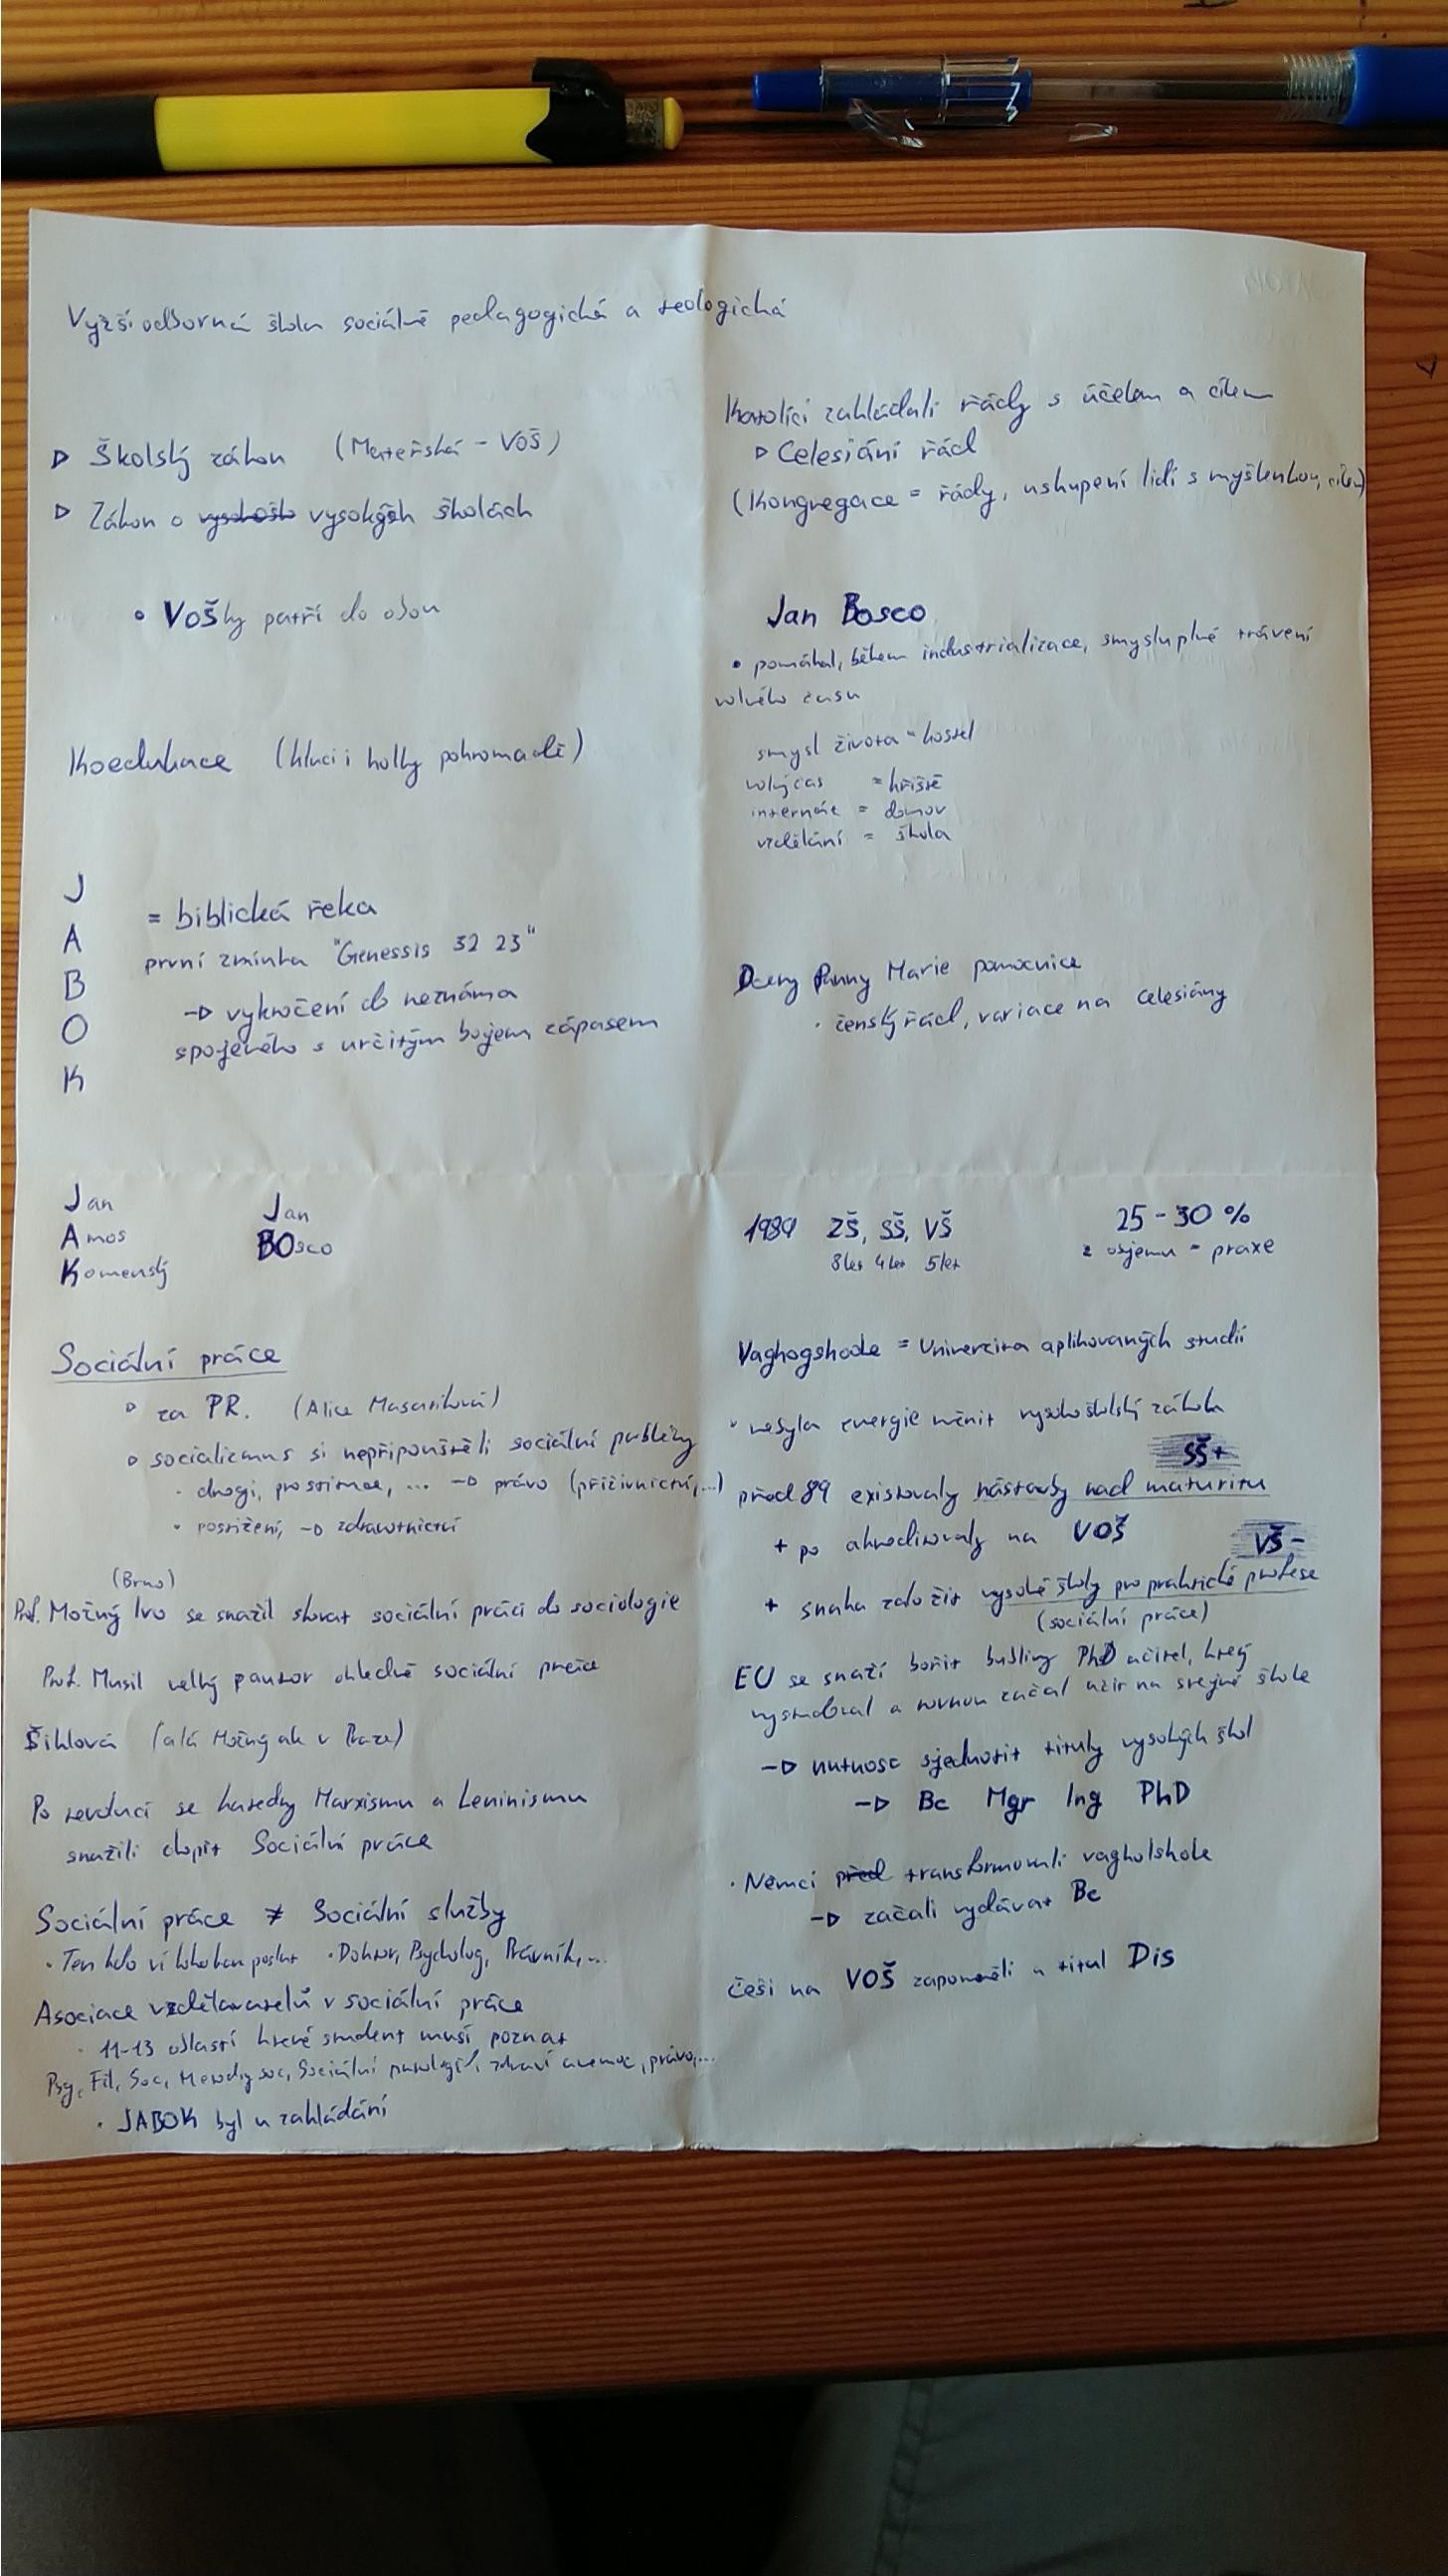 Vyžší odborná škola sociálně pedagogická a teologická
▷ Školský zákon (Mateřská - VOŠ)
▷ Zákon o vysokých školách
• VOŠky patří do obou
Koedukace (kluci i holky pohromadě)
J
A
B
O
K
= biblická řeka
první zmínka "Genessis 32 23"
→ vykročení do neznáma
spojeného s určitým bojem zápasem
Katolíci zakládali řády s účelem a cílem
▷ Celesiání řád
(Kongregace = řády, uskupení lidí s myšlenkou, cílem)
Jan Bosco
• pomáhal, během industrializace, smysluplné trávení
volného času
smysl života = kostel
volný čas = hřiště
internát = domov
vzdělání = škola
Dcery Panny Marie pomocnice
• ženský řád, variace na celesiány
Jan
Amos
Komenský
Jan
BOsco
Sociální práce
▷ za PR. (Alice Masariková)
▷ socialismus si nepřipouštěli sociální problémy
• drogi, prostituce, ... → právo (příživnictví,...)
• postižení, → zdravotnictví
(Brno)
Prof. Možný Ivo se snažil skovat sociální práci do sociologie
Prof. Musil velký pautor ohledně sociální práce
Šiklová (alá Možný ak v Praze)
Po revoluci se katedry Marxismu a Leninismu
snažili chopit Sociální práce
Sociální práce ≠ Sociální služby
• Ten kdo ví koho kam poslat • Doktor, Psycholog, Právník,...
Asociace vzdělavatelů v sociální práce
• 11-13 oblastí které student musí poznat
Psy, Fil, Soc, Metody soc, Sociální patologie, zdraví a nemoc, právo,...
• JABOK byl u zakládání
1989 ZŠ, SŠ, VŠ
8 let 4 let 5 let
25 - 30 %
z objemu = praxe
Vaghogshoole = Univerzita aplikovaných studií
• nebyla energie měnit vysokoškolský zákon
SŠ+
před 89 existovaly nástavby nad maturitu
+ po akreditovaly na VOŠ
VŠ -
+ snaha založit vysoké školy pro praktické profese
(sociální práce)
EU se snaží bořit bubliny PhD učitel, který
vystudoval a rovnou začal učit na stejné škole
→ nutnost sjednotit tituly vysokých škol
→ Bc Mgr Ing PhD
• Němci před transformovali vagholshole
→ začali vydávat Bc
češi na VOŠ zapomněli a titul Dis